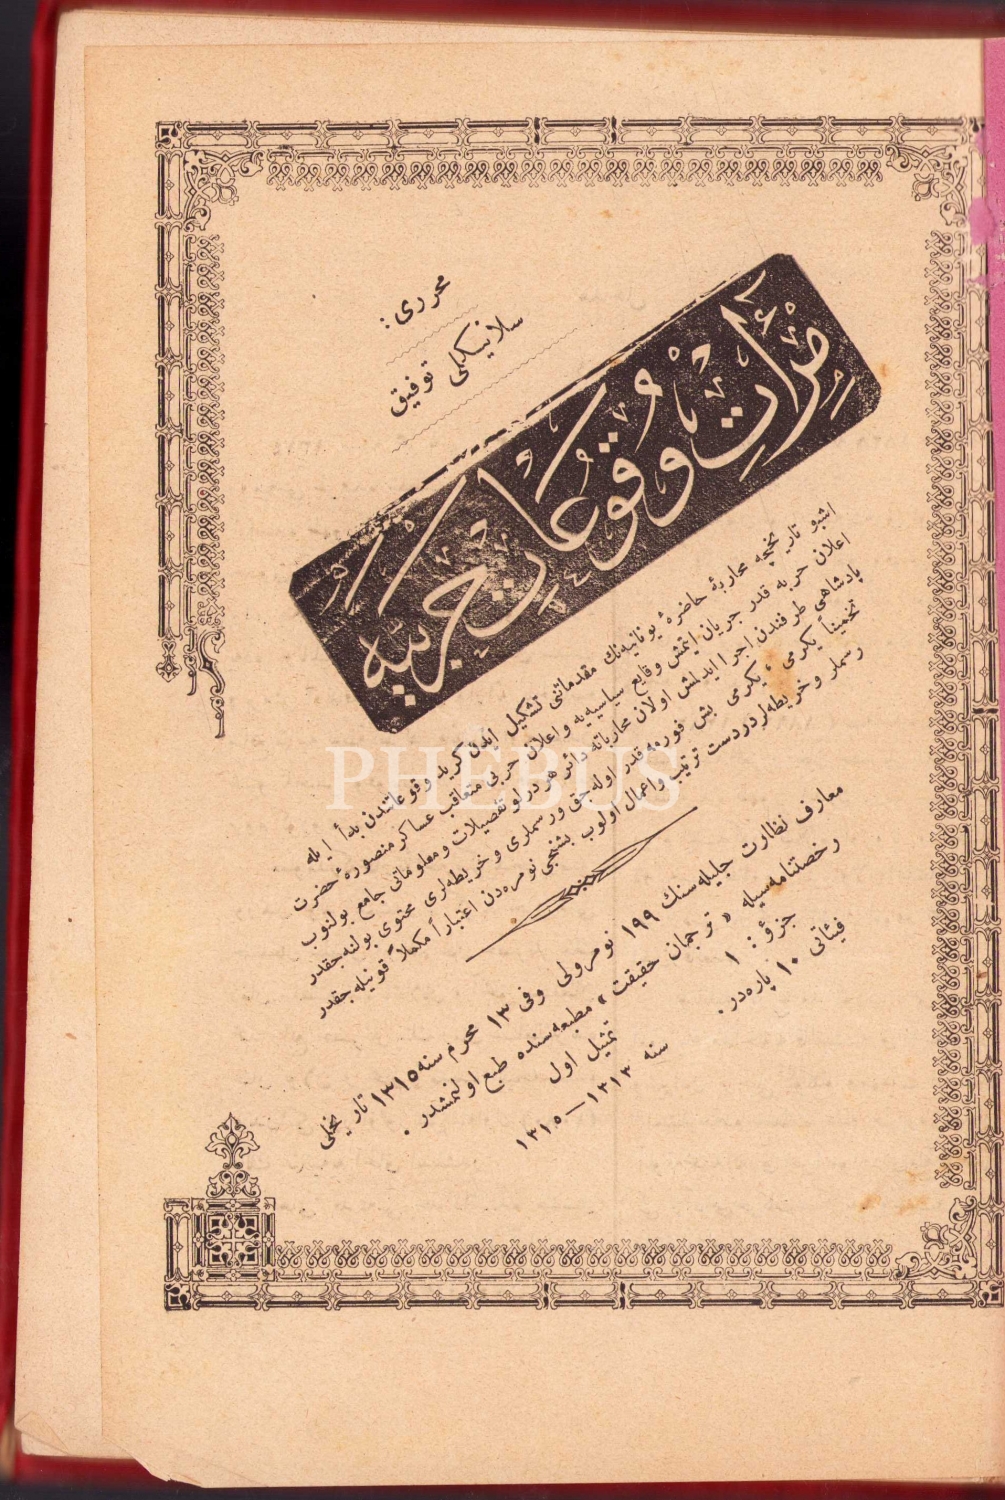 محرری :
سلانیکلی توفیق
مرآت وقوعات حربیه
اشبو تاریخچه محاربهٔ حاضرهٔ یونانیه‌نك مقدماتنی تشکیل ایدن کرید وقوعاتندن بدأ ایله
اعلان حربه قدر جریان ایتمش وقایع سیاسیه‌یه و اعلان حربی متعاقب عساکر منصورهٔ حضرت
پادشاهی طرفندن اجرا ایدلمش اولان محارباته دائر هر درلو تفصیلات و معلوماتی جامع بولنوب
تخمیناً یکرمی ، یکرمی بش فورمه‌یه قدر اوله‌جق و رسملری و خریطه‌لری محتوی بولنه‌جقدر
رسملر و خریطه‌لر دردست ترتیب و اعمال اولوب بشنجی نومرودن اعتباراً مکملاً قونیله‌جقدر
معارف نظارت جلیله‌سنك ۱۹۹ نومرولی وفی ۱۳ محرم سنه ۱۳۱۵ تاریخلی
رخصتنامه‌سیله « ترجمان حقیقت » مطبعه‌سنده طبع اولنمشدر .
جزؤ : ۱
تمثیل اول
فیئاتی ۱۰ پاره‌در .
سنه ۱۳۱۳ — ۱۳۱۵
PHEBUS